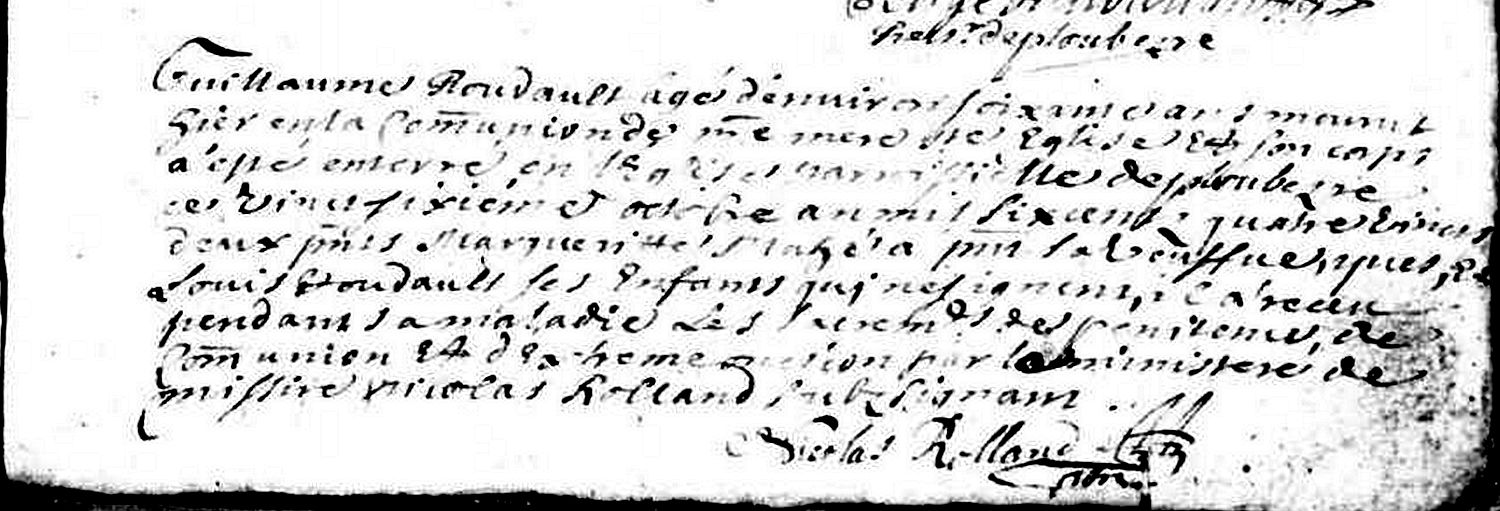 de ploubezre
Guillaume Roudault agé d'enuiron soixaine ans mourut
hier en la Com̄union de n̄re mere ste Eglise Et son corps
a esté enterré en l'Eglise parroissielle de ploubezre
ce vinct sixiéme octobre an mil six cent quatre vincts
deux p̄nts Margueritte p̄nt sa veuffue, yues, Et
Louis Roudault ses Enfants qui ne signent, il a receu
pendant sa maladie Les sacrem̄ts de penitence, de
Com̄union Et d'Extreme onction par le ministere de
missire Nicolas Rolland subsignant
Nicolas Rolland ptre